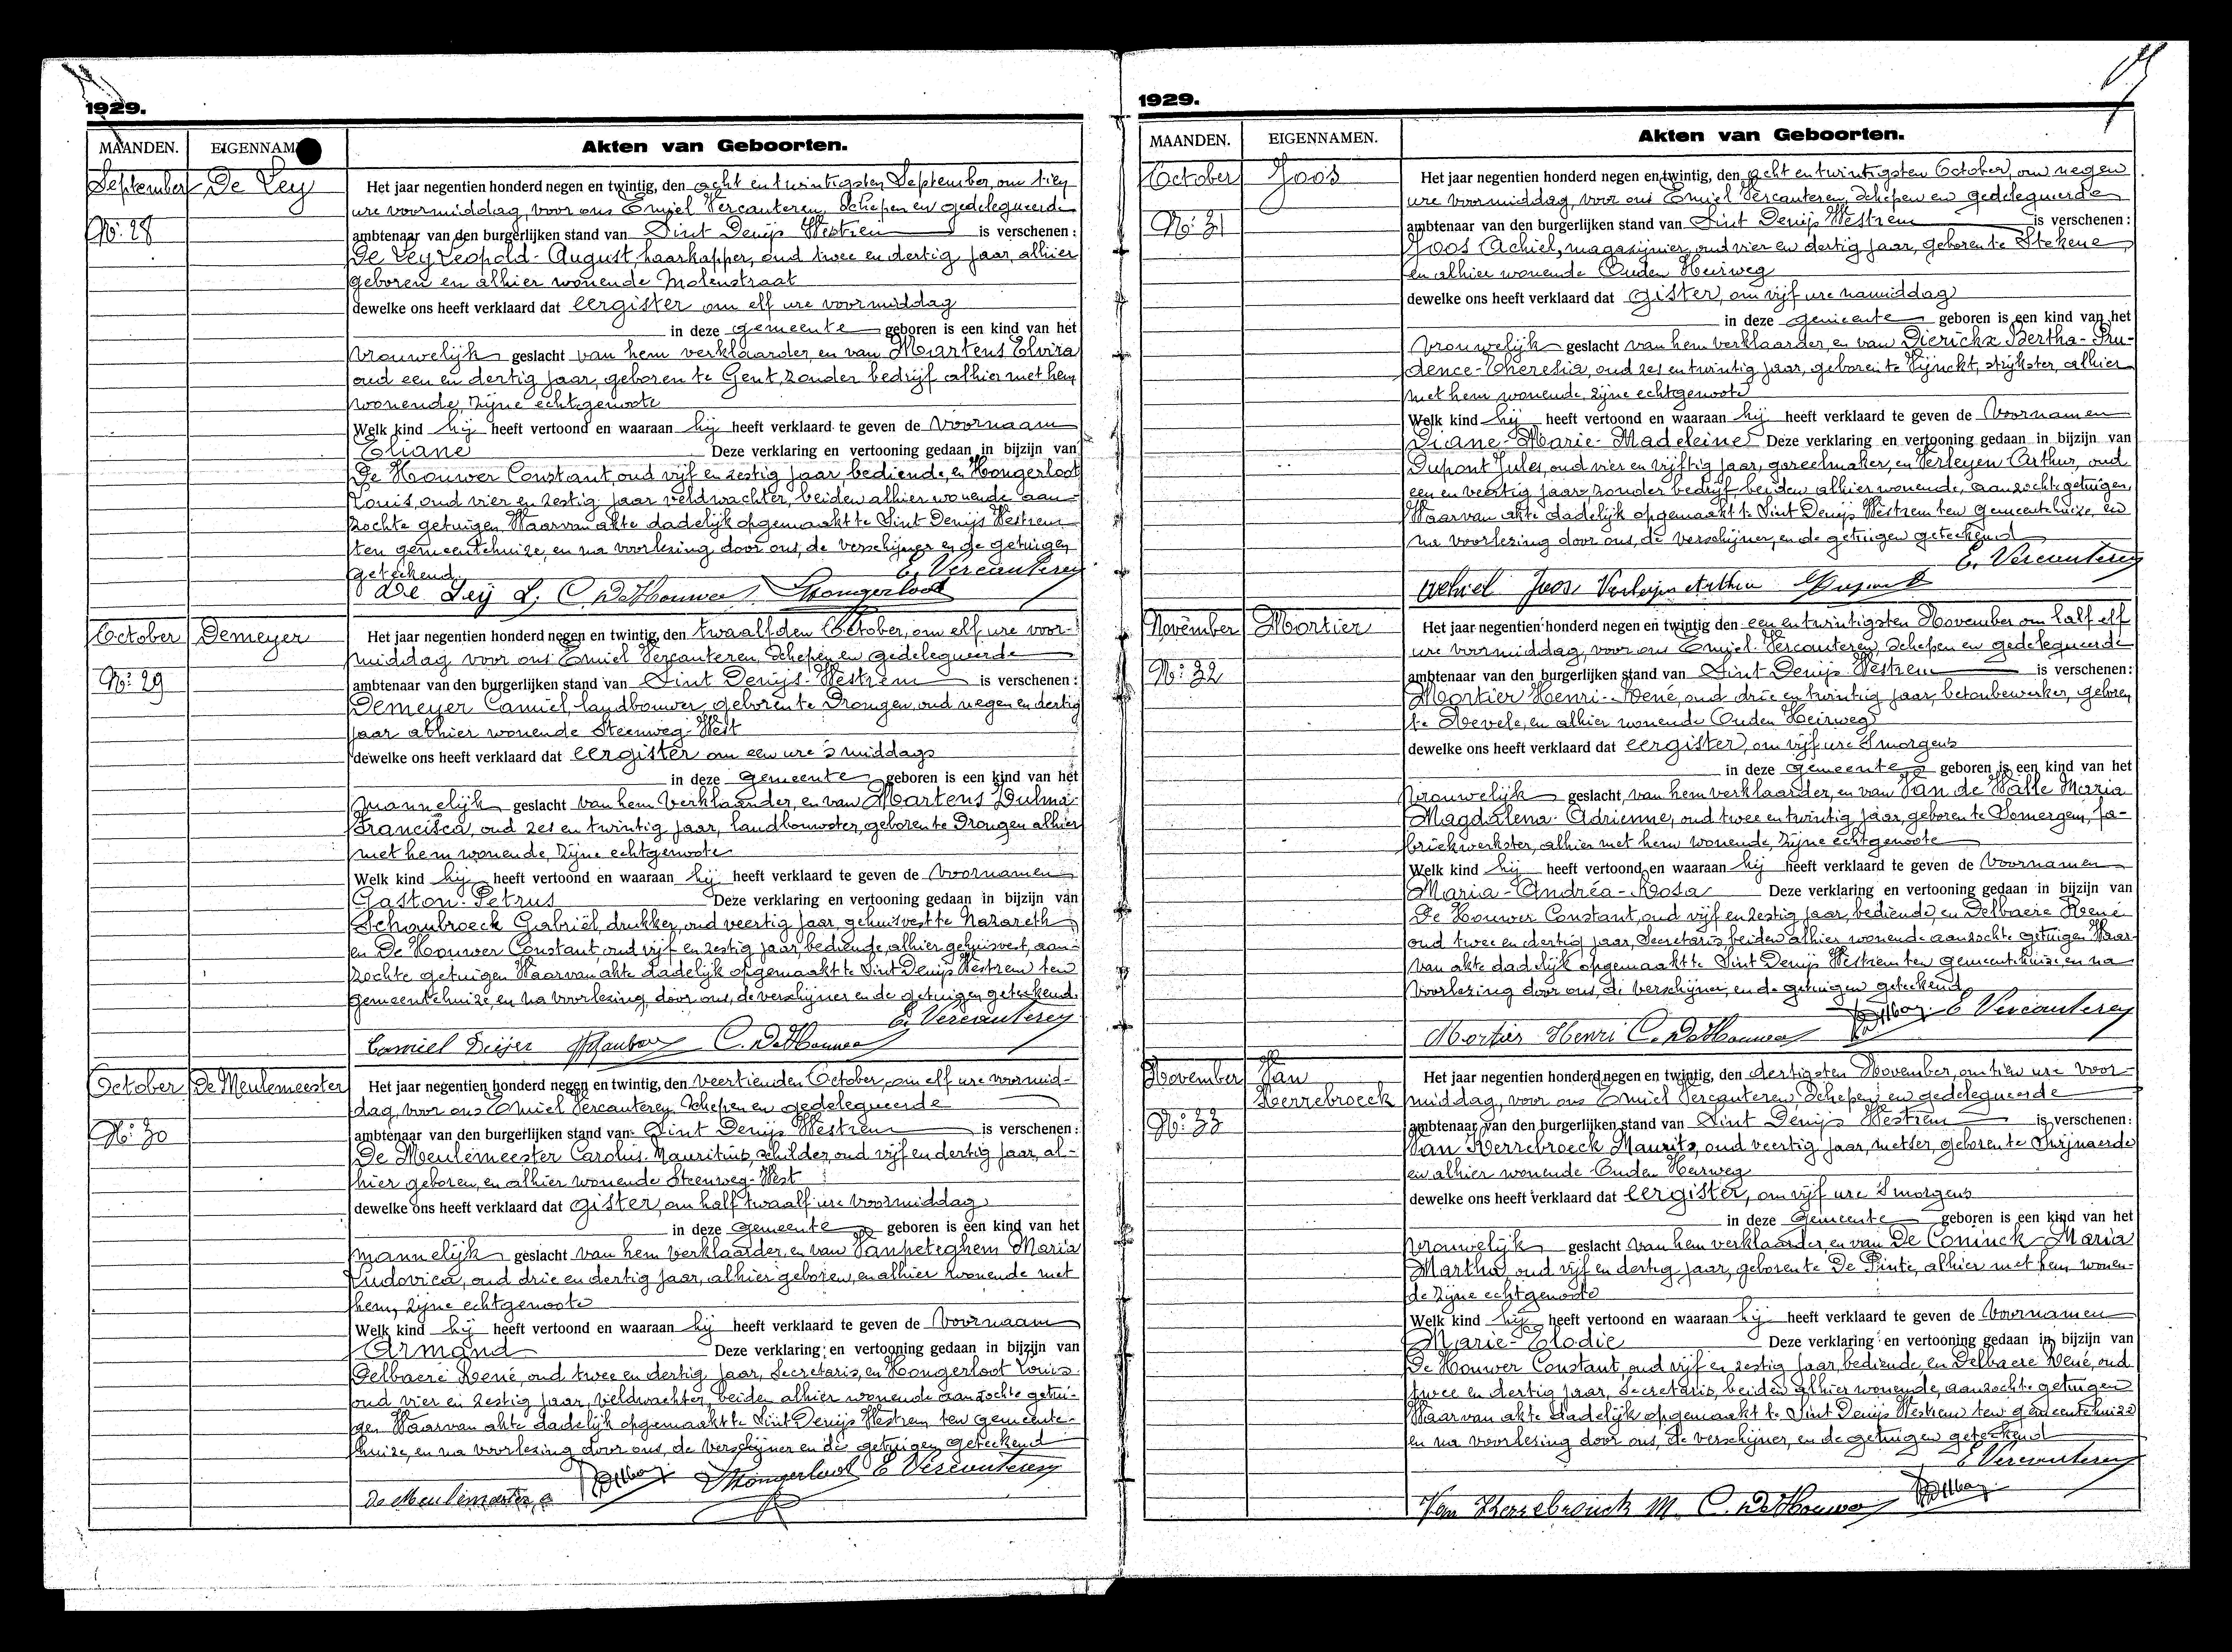 1929.
MAANDEN. EIGENNAM
Akten van Geboorten.
September De Ley
Nr: 28
Het jaar negentien honderd negen en twintig, den acht en twintigsten September, om tien
ure voormiddag, voor ons Emiel Vercauteren, Schepen en gedelegueerde
ambtenaar van den burgerlijken stand van Sint Denijs Westrem is verschenen:
De Ley Leopold-August, haarkapper, oud twee en dertig jaar, alhier
geboren en alhier wonende Molenstraat
dewelke ons heeft verklaard dat eergister om elf ure voormiddag
in deze gemeente geboren is een kind van het
vrouwelijk geslacht van hem verklaarder, en van Martens Elvira
oud een en dertig jaar, geboren te Gent, zonder bedrijf alhier met hem
wonende, zijne echtgenoote
Welk kind hij heeft vertoond en waaraan hij heeft verklaard te geven de voornaam
Eliane Deze verklaring en vertooning gedaan in bijzijn van
De Houwer Constant, oud vijf en zestig jaar, bediende, en Hongerloot
Louis, oud vier en zestig jaar veldwachter, beiden alhier wonende aan-
zochte getuigen, Waarvan akte dadelijk opgemaakt te Sint Denijs Westrem
ten gemeentehuize, en na voorlezing door ons, de verschijner en de getuigen
geteekend. E. Vercauteren
De Leÿ L. C. DeHouwer Hongerloot
October Demeyer
Nr: 29
Het jaar negentien honderd negen en twintig, den twaalfden October, om elf ure voor-
middag voor ons Emiel Vercauteren, Schepen en gedelegueerde
ambtenaar van den burgerlijken stand van Sint Denijs-Westrem is verschenen:
Demeyer Camiel, landbouwer, geboren te Drongen, oud negen en dertig
jaar alhier wonende Steenweg-West
dewelke ons heeft verklaard dat eergister om een ure 's middags
in deze gemeente geboren is een kind van het
mannelijk geslacht van hem verklaarder, en van Martens Dulma-
Francisca, oud zes en twintig jaar, landbouwster, geboren te Drongen alhier
met hem wonende, zijne echtgenoote
Welk kind hij heeft vertoond en waaraan hij heeft verklaard te geven de voornamen
Gaston-Petrus Deze verklaring en vertooning gedaan in bijzijn van
Schaubroeck Gabriël, drukker, oud veertig jaar, gehuisvest te Nazareth
en De Houwer Constant, oud vijf en zestig jaar, bediende, alhier gehuisvest, aan-
zochte getuigen Waarvan akte dadelijk opgemaakt te Sint Denijs Westrem ten
gemeentehuize, en na voorlezing, door ons, de verschijner en de getuigen geteekend.
E. Vercauteren
Camiel C. DeHouwer
October De Meulemeester
Nr: 30
Het jaar negentien honderd negen en twintig, den veertienden October, om elf ure voormid-
dag, voor ons Emiel Vercauteren Schepen en gedelegueerde
ambtenaar van den burgerlijken stand van Sint Denijs Westrem is verschenen:
De Meulemeester Carolus-Mauritius, schilder, oud vijf en dertig jaar, al-
hier geboren, en alhier wonende Steenweg-West
dewelke ons heeft verklaard dat gister, om half twaalf ure voormiddag
in deze gemeente geboren is een kind van het
mannelijk geslacht van hem verklaarder, en van Vanpeteghem Maria
Ludovica, oud drie en dertig jaar, alhier geboren, en alhier wonende met
hem, zijne echtgenoote
Welk kind hij heeft vertoond en waaraan hij heeft verklaard te geven de voornaam
Armand Deze verklaring en vertooning gedaan in bijzijn van
Delbaere René, oud twee en dertig jaar, Secretaris, en Hongerloot Louis
oud vier en zestig jaar, veldwachter, beiden alhier wonende aanzochte getui-
gen Waarvan akte dadelijk opgemaakt te Sint Denijs Westrem ten gemeente-
huize, en na voorlezing door ons, de verschijner en de getuigen geteekend
De Meulemeester C Hongerloot E Vercauteren
1929.
MAANDEN. EIGENNAMEN.
Akten van Geboorten.
October Joos
Nr: 31
Het jaar negentien honderd negen en twintig, den acht en twintigsten October, om negen
ure voormiddag, voor ons Emiel Vercauteren, Schepen en gedelegueerde
ambtenaar van den burgerlijken stand van Sint Denijs Westrem is verschenen:
Joos Achiel, magazijnier, oud vier en dertig jaar, geboren te Stekene
en alhier wonende Ouden Heirweg
dewelke ons heeft verklaard dat gister, om vijf ure namiddag
in deze gemeente geboren is een kind van het
vrouwelijk geslacht van hem verklaarder, en van Dierickx Bertha-Pru-
dence-Theresia, oud zes en twintig jaar, geboren te Vijnckt, strijkster, alhier
met hem wonende, zijne echtgenoote
Welk kind hij heeft vertoond en waaraan hij heeft verklaard te geven de voornamen
Diane-Marie-Madeleine Deze verklaring en vertooning gedaan in bijzijn van
Dupont Jules, oud vier en vijftig jaar, gareelmaker, en Verleyen Arthur, oud
een en veertig jaar, zonder bedrijf beiden alhier wonende, aanzochte getuigen,
Waarvan akte dadelijk opgemaakt te Sint Denijs Westrem ten gemeentehuize, en
na voorlezing door ons, de verschijner, en de getuigen geteekend
E. Vercauteren
Achiel Joos Verleyen Arthur Dupont
November Mortier
Nr: 32
Het jaar negentien honderd negen en twintig den een en twintigsten November om half elf
ure voormiddag, voor ons Emiel Vercauteren, Schepen en gedelegueerde
ambtenaar van den burgerlijken stand van Sint Denijs Westrem is verschenen:
Mortier Henri-René, oud drie en twintig jaar, betonbewerker, geboren
te Nevele, en alhier wonende Ouden Heirweg
dewelke ons heeft verklaard dat eergister, om vijf ure Smorgens
in deze gemeente geboren is een kind van het
vrouwelijk geslacht, van hem verklaarder, en van Van de Walle Maria
Magdalena-Adrienne, oud twee en twintig jaar, geboren te Somergem, fa-
briekwerkster, alhier met hem wonende, zijne echtgenoote
Welk kind hij heeft vertoond en waaraan hij heeft verklaard te geven de voornamen
Maria-Andréa-Rosa Deze verklaring en vertooning gedaan in bijzijn van
De Houwer Constant, oud vijf en zestig jaar, bediende, en Delbaere René
oud twee en dertig jaar, Secretaris, beiden alhier wonende aanzochte getuigen Waar-
van akte dadelijk opgemaakt te Sint Denijs Westrem ten gemeentehuize, en na
voorlezing door ons, de verschijner, en de getuigen geteekend
E Vercauteren
Mortier Henri C. DeHouwer
November Van
Herrebroeck
Nr: 33
Het jaar negentien honderd negen en twintig, den dertigsten November, om tien ure voor-
middag, voor ons Emiel Vercauteren, Schepen en gedelegueerde
ambtenaar van den burgerlijken stand van Sint Denijs Westrem is verschenen:
Van Herrebroeck Maurits, oud veertig jaar, metser, geboren te Swijnaerde
en alhier wonende Ouden Heirweg
dewelke ons heeft verklaard dat eergister, om vijf ure Smorgens
in deze gemeente geboren is een kind van het
vrouwelijk geslacht van hem verklaarder, en van De Coninck Maria
Martha, oud vijf en dertig jaar, geboren te De Pinte, alhier met hem wonen-
de zijne echtgenoote
Welk kind hij heeft vertoond en waaraan hij heeft verklaard te geven de voornamen
Marie-Elodie Deze verklaring en vertooning gedaan in bijzijn van
De Houwer Constant, oud vijf en zestig jaar, bediende en Delbaere René, oud
twee en dertig jaar, Secretaris, beiden alhier wonende, aanzochte getuigen
Waarvan akte dadelijk opgemaakt te Sint Denijs Westrem ten gemeentehuize
en na voorlezing door ons, de verschijner, en de getuigen geteekend
E Vercauteren
Van Herrebrouck M. C. DeHouwer